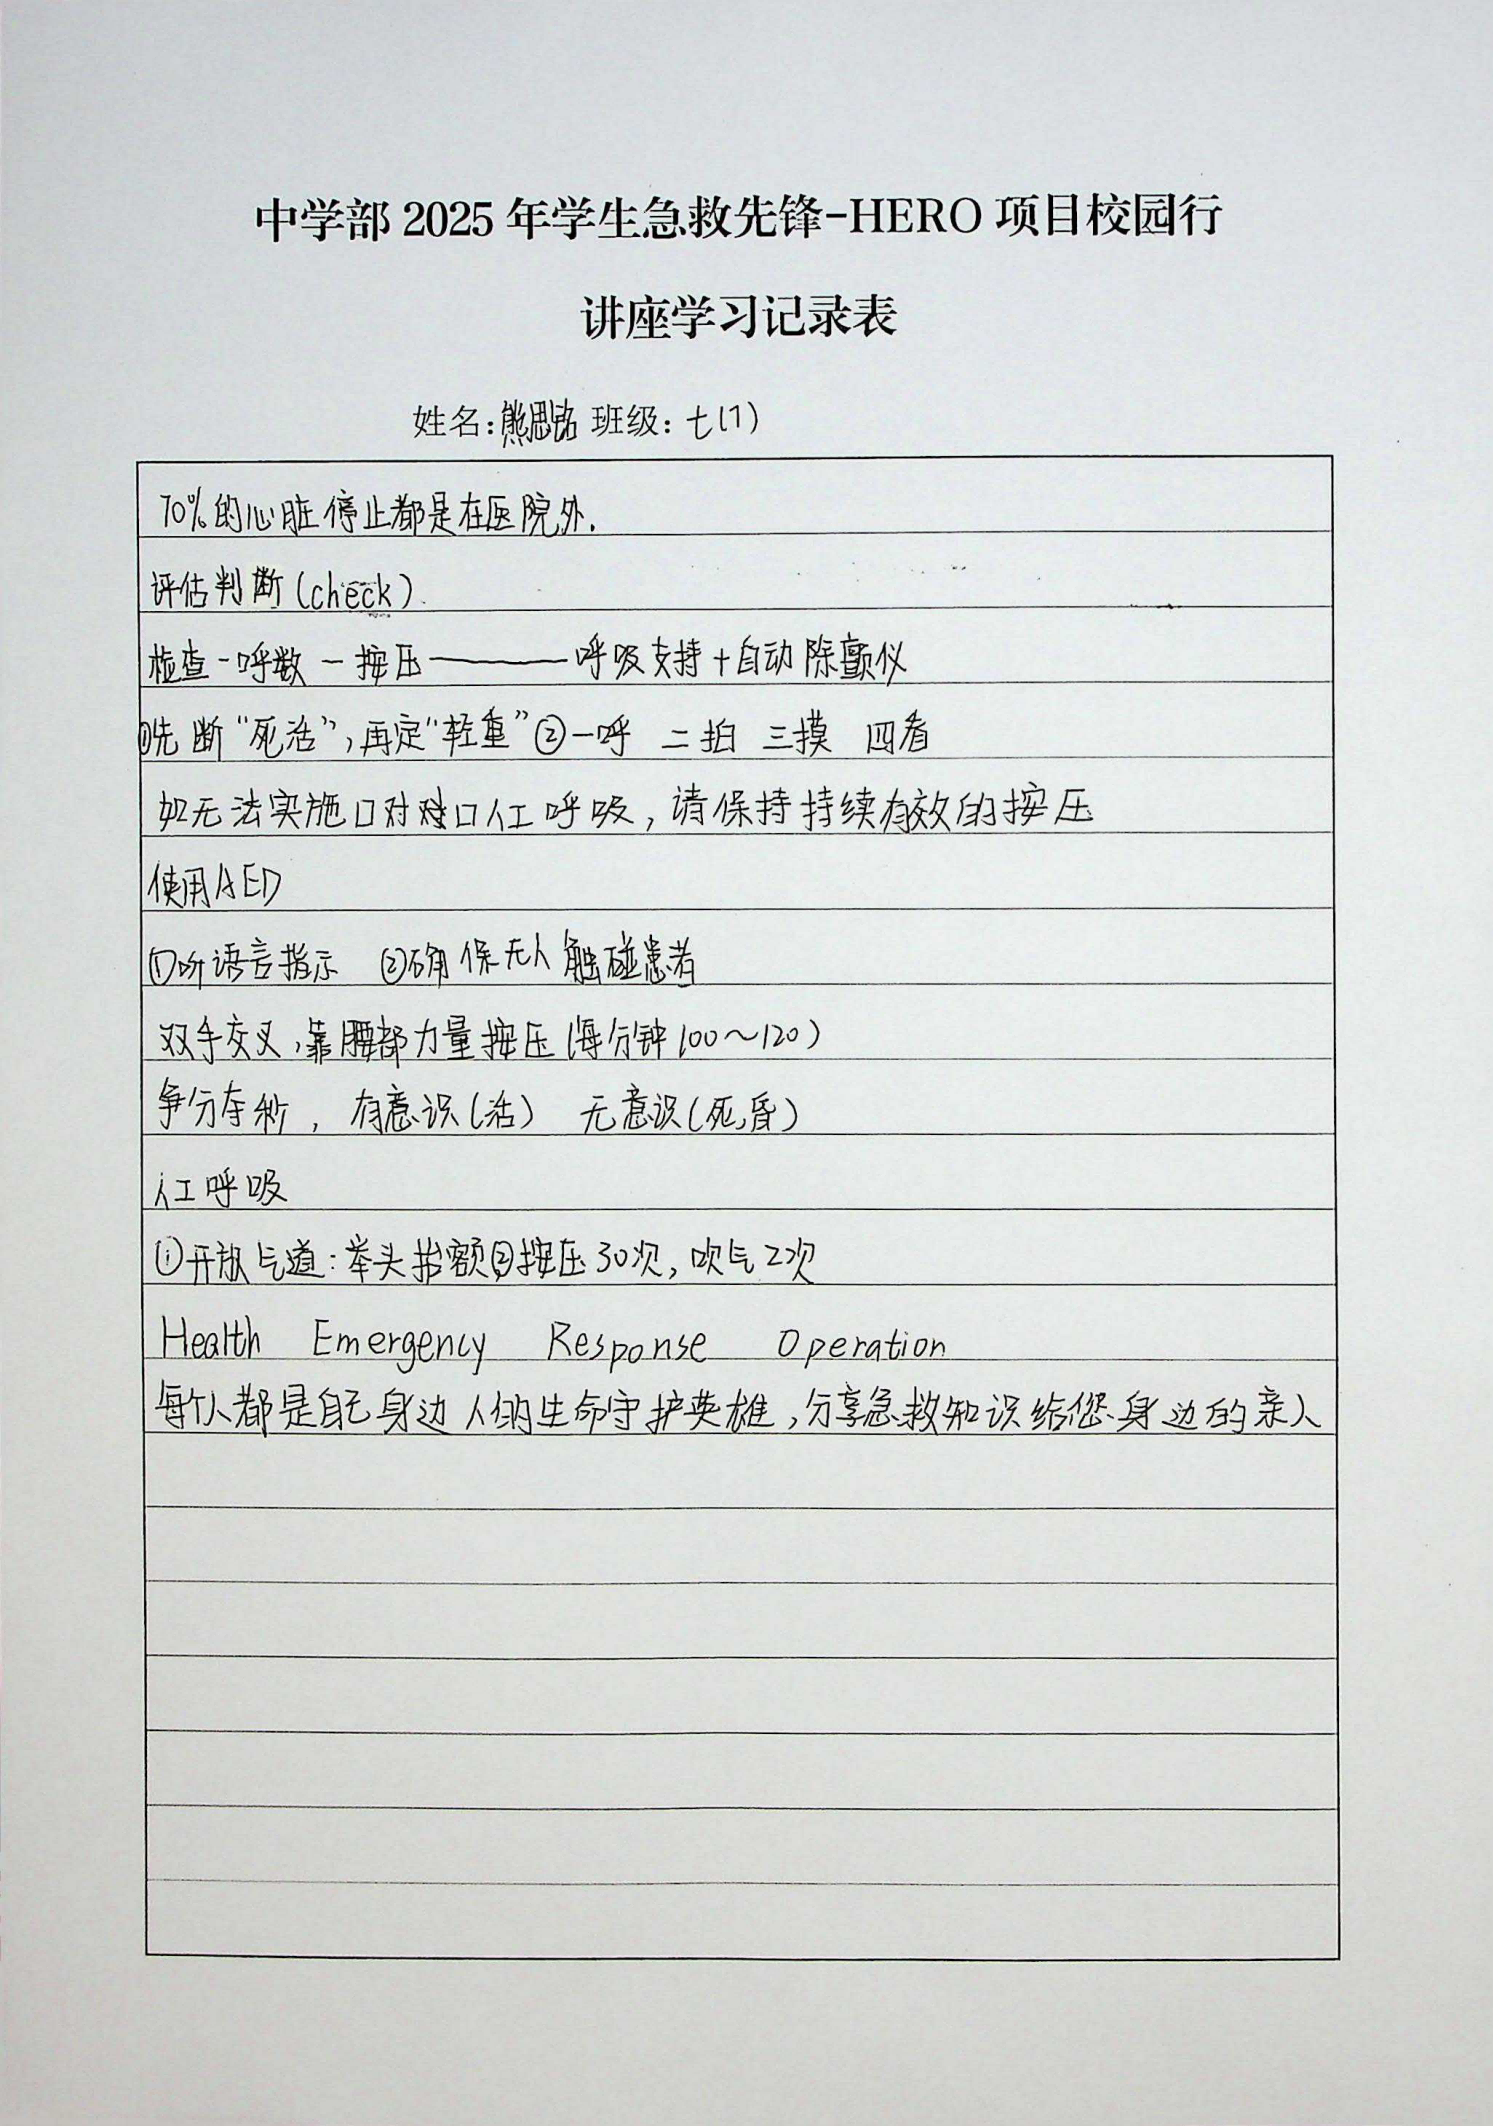 中学部 2025 年学生急救先锋-HERO 项目校园行
讲座学习记录表
姓名:熊思 班级: 七(7)
70%的心脏停止都是在医院外.
评估判断(check)
检查-呼数-按压————呼吸支持+自动除颤仪
①先断“死活”,再定“轻重”②一呼 二拍 三摸 四看
如无法实施口对对口人工呼吸,请保持持续有效的按压
使用AED
①听语言指示 ②确保无人触碰患者
双手交叉,靠腰部力量按压(每分钟100~120)
争分夺秒, 有意识(活) 无意识(死,昏)
人工呼吸
①开放气道:举头抬额②按压30次,吹气2次
Health Emergency Response Operation
每个人都是自己身边人的生命守护英雄,分享急救知识给您身边的亲人